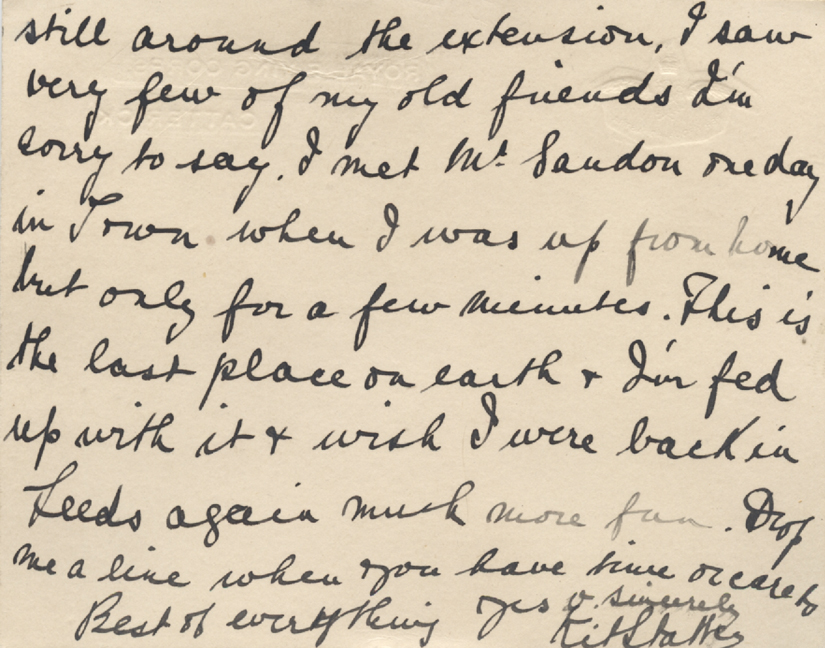 still around the extension, I saw
very few of my old friends I'm
sorry to say. I met Mr. Sandon one day
in Town when I was up from home
but only for a few minutes. This is
the last place on earth & I'm fed
up with it & wish I were back in
Leeds again much more fun. Drop
me a line when you have time or care to
Best of everything yrs v. sincerely
Kit